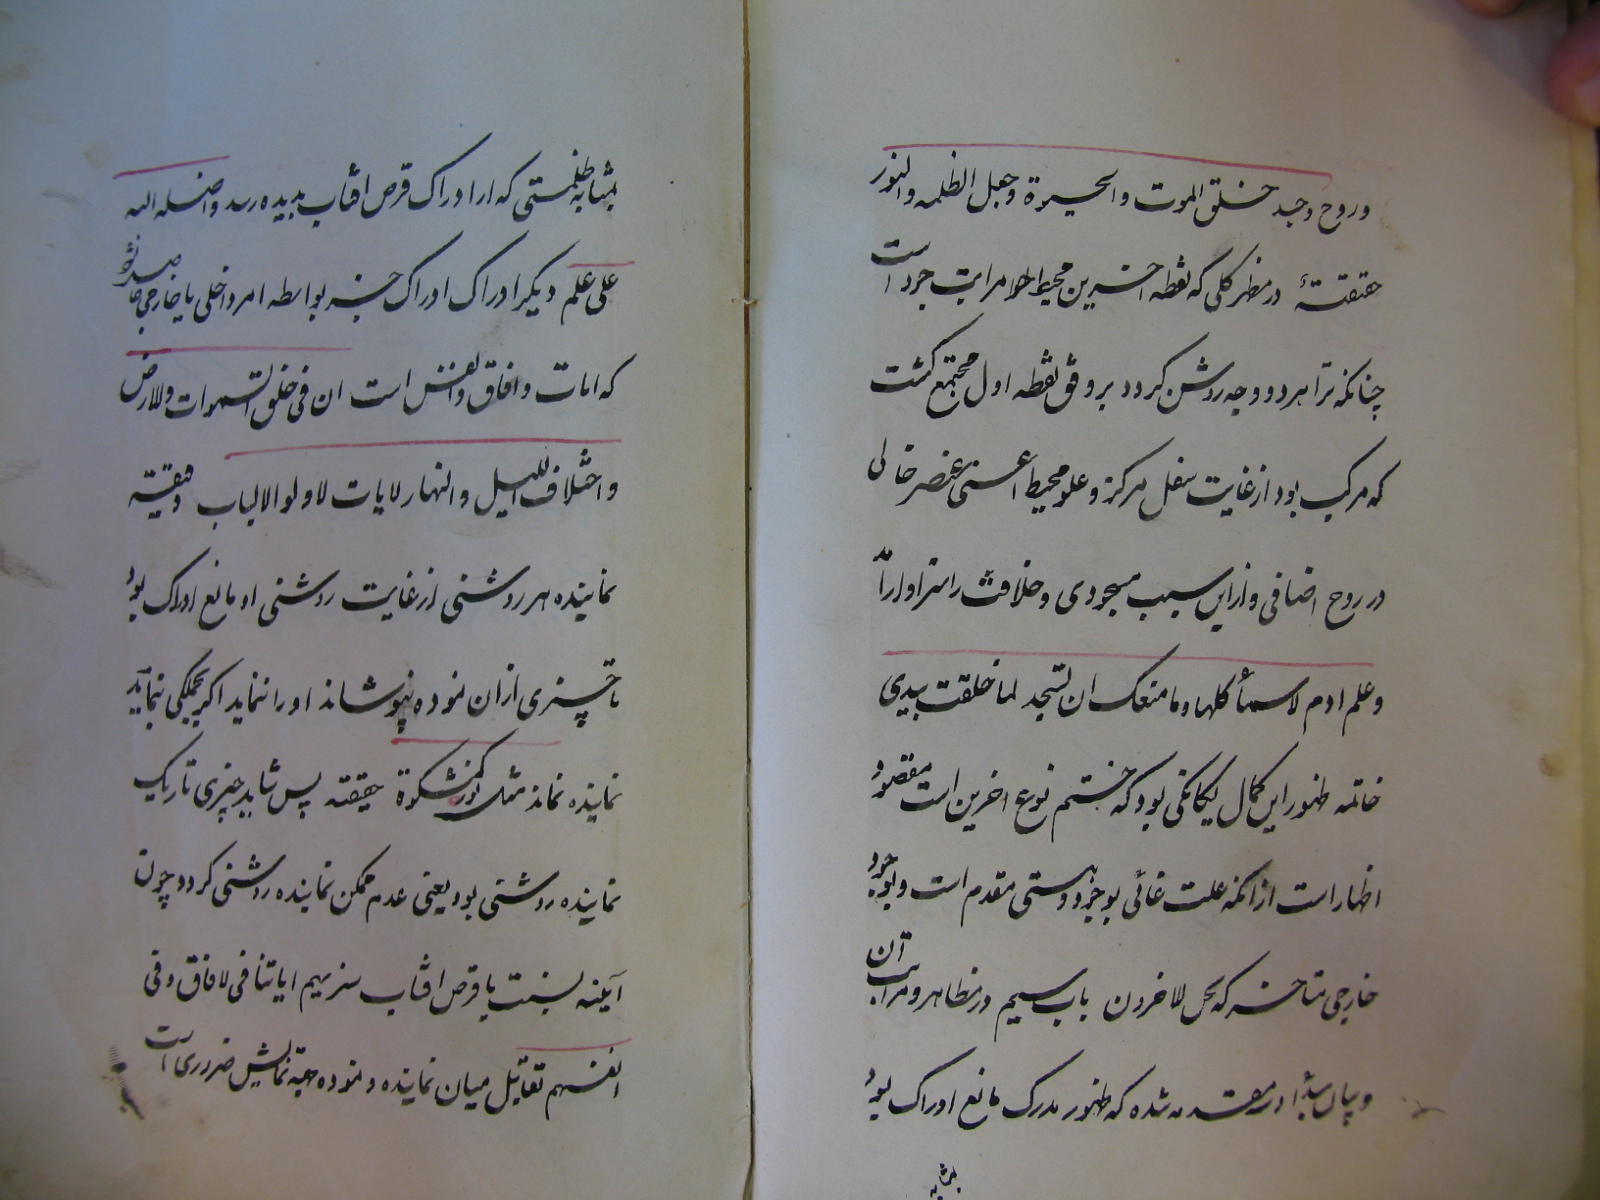 و روح و جسد خلق الموت والحیوة و جعل الظلمه والنور
حقیقتهٔ در مظهر کلی که نقطه اخیرین محیط اطوار مراتب وجود است
چنانکه ترا هر دو وجه روشن گردد بر وفق نقطه اول مجتمع گشت
که مرکب بود از غایت سفل مرکز و علو محیط اعنی عنصر خاکی
در روح اضافی و از این سبب مسجودی و خلافت را سزاوار آمد
و علم ادم لاسمأ کلها و ما منعک ان تسجد لما خلقت بیدی
خاتمه ظهور این کمال یگانگی بود که ختم نوع اخرین است مقصود
اظهار است از آنکه علت غائی بوجود ذهنی مقدم است و بوجود
خارجی متاخر که نحن الاخرون باب سیم در مظاهر و مراتب آن
و بیان مبدأ در مقدمه شده که ظهور مدرک مانع ادراک بود
بمثابه
بمثابه ظلمتی که از ادراک قرص افتاب بدیده رسد و اضله الله
علی علم دیگر ادراک ادراک جز بواسطه امر داخلی یا خارجی صورت نه‌بندد
که امات و افاق و انفس است ان فی خلق السموات ولارض
و اختلاف اللیل و النهار لایات لاولو الالباب دقیقته
نماینده هر روشنی از غایت روشنی او مانع ادراک بود
تا چیزی از ان نموده نپوشاند او را ننماید اگر بجملگی بنماید
نماینده نماند مثل نوره کمشکوة حقیقته پس شاید چیزی تاریک
نماینده روشنی بود یعنی عدم ممکن نماینده روشنی گردد چون
آیینه نسبت با قرص افتاب سنریهم ایاتنا فی لافاق و فی
انفسهم تقابل میان نماینده و نموده جهة نمایش ضروری است